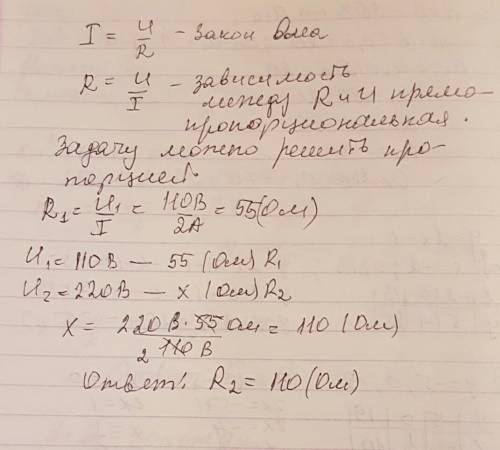 I = U/R – Закон Ома
R = U/I – зависимость
между R и U прямо-
пропорциональная.
Задачу можно решить про-
порцией.
R₁ = U₁/I = 110В/2А = 55(Ом)
U₁ = 110 В — 55 (Ом) R₁
U₂ = 220 В — x (Ом) R₂
x = 220 В · 55 Ом / 110 В = 110 (Ом)
2
Ответ: R₂ = 110 (Ом)